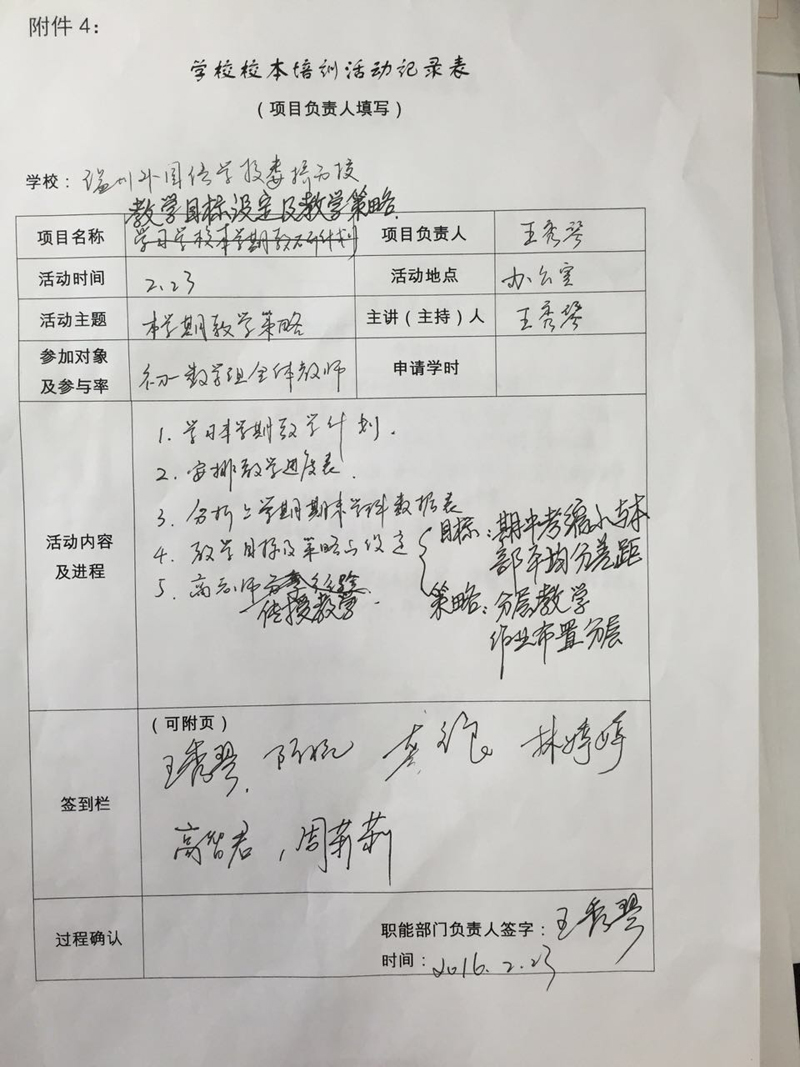 附件4：
学校校本培训活动记录表
（项目负责人填写）
学校：瑞州外国语学校娄桥分校
教学目标设定及教学策略.
项目名称 学习学校本学期教研计划 项目负责人 王秀琴
活动时间 2.23 活动地点 办公室
活动主题 本学期教学策略 主讲（主持）人 王秀琴
参加对象
及参与率 初一数学组全体教师 申请学时
活动内容
及进程
1. 学习本学期教学计划.
2. 安排教学进度表.
3. 分析上学期期末学科数据表
4. 教学目标及策略的设定 目标：期中考缩小与本
部平均分差距
5. 高老师 传授教学.
策略：分层教学
作业布置分层
（可附页）
签到栏
王秀琴 林婷婷
高智君，周莉莉
过程确认 职能部门负责人签字：王秀琴
时间：2016.2.23